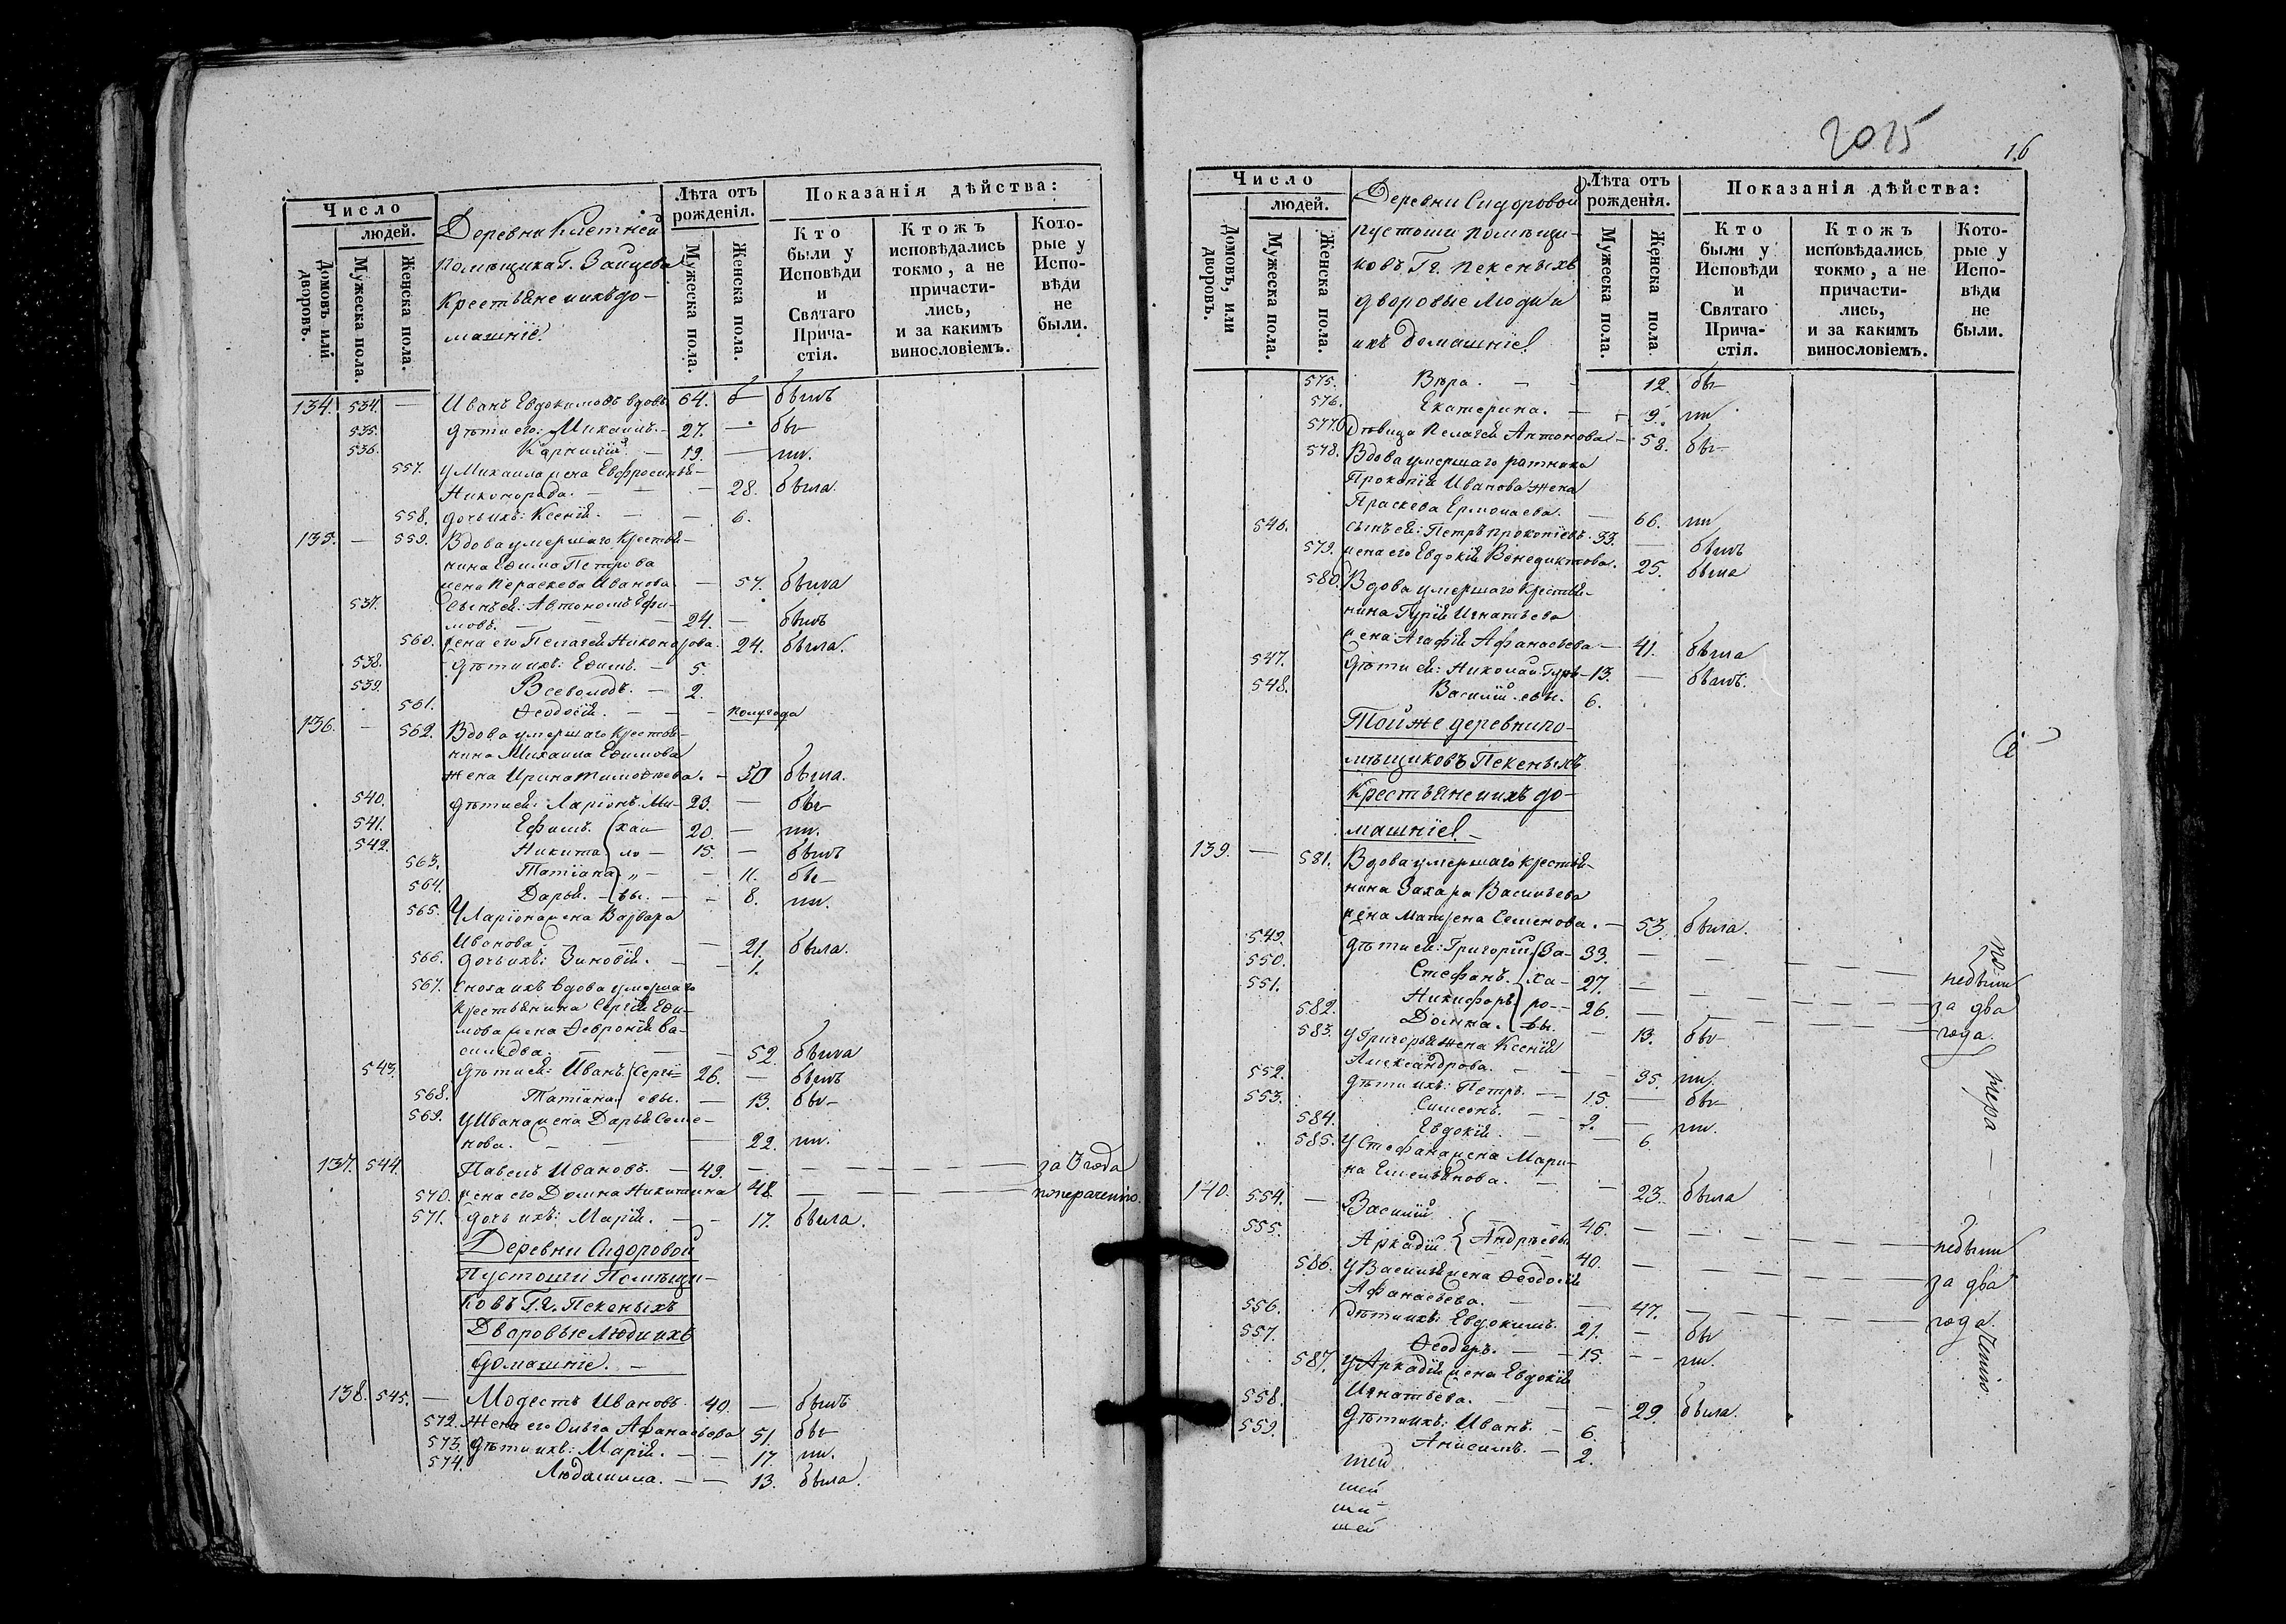 Число
людей.
Домовъ или дворовъ.
Мужеска пола.
Женска пола.
Деревни Клетней
помѣщика Г. Зайцева
Крестьяне и ихъ до-
машніе.
Лѣта отъ рожденія.
Мужеска пола.
Женска пола.
Показанія дѣйства:
Кто
были у
Исповѣди
и
Святаго
Прича-
стія.
Ктожъ
исповѣдались
токмо, а не
причасти-
лись,
и за какимъ
винословіемъ.
Кото-
рые у
Испо-
вѣди
не
были.
134. 534. — Иванъ Евдокимовъ вдовъ 64. былъ
535. дѣти его: Михаилъ. — 27. — бы—
536. Карнилій. — 19. — ли.
557. у Михаила жена Евфросинья
Никонорова. — — — 28. была.
558. дочь ихъ: Ксенія. — — 6.
135. — 559. Вдова умершаго крестья-
нина Ефима Петрова
жена Пераскева Иванова — 57. была
537. Сынъ ея: Автономъ Ефи-
мовъ. — — — 24. — былъ
560. жена его Пелагея Никонорова. 24. была.
538. дѣти ихъ: Ефимъ. — 5.
539. Всеволодъ. — 2.
561. Ѳеодосія. — — — полугода
136. — 562. Вдова умершаго крестья-
нина Михаила Ефимова
жена Ирина Тимоѳеева. — 50 была.
540. дѣти ея: Ларіонъ Ми- 23. — бы—
541. Ефимъ. хаи- 20. — ли.
542. Никита ло— 15. — былъ
563. Татіана „ — — 11. бы—
564. Дарья. — вы. — — 8. ли.
565. У Ларіона жена Варвара
Иванова. — — 21. была.
566. дочь ихъ: Зиновія. — — 1.
567. Сноха ихъ вдова умершаго
крестьянина Сергія Ефи-
мова жена Ѳевронія Ва-
сильева. — — — 52. была
543. дѣти ея: Иванъ Сергі- 26. — былъ
568. Татіана евы. — 13. бы—
569. у Ивана жена Дарья Семе-
нова. — — — 22. ли.
137. 544. Павелъ Ивановъ. — 49. — — — — — за 3 года
570. жена его Домна Никитина 48. — — — понерадению.
571. дочь ихъ: Марія. — — 17. была.
Деревни Сидоровой
Пустоши Помѣщи-
ковъ Г.г. Пекеныхъ
Дворовые люди и ихъ
домашніе. —
138. 545. — Модестъ Ивановъ 40. — былъ
572. Жена его Ольга Афанасьева 51. бы—
573. дѣти ихъ: Марія. — — 17. ли.
574. Людмила. — — 13. была.
2015
16
Число
людей.
Домовъ, или дворовъ.
Мужеска пола.
Женска пола.
Деревни Сидоровой
пустоши помѣщи-
ковъ Гг. Пекеныхъ
дворовые люди и
ихъ домашніе.
Лѣта отъ рожденія.
Мужеска пола.
Женска пола.
Показанія дѣйства:
Кто
были у
Исповѣди
и
Святаго
Прича-
стія.
Ктожъ
исповѣдались
токмо, а не
причасти-
лись,
и за какимъ
винословіемъ.
Кото-
рые у
Испо-
вѣди
не
были.
575. Вѣра. — — 12. бы—
576. Екатерина. — — 9. ли.
577. Дѣвица Пелагея Антонова — 58. бы—
578. Вдова умершаго ратника
Прокопія Иванова жена
Праскева Ермолаева. — 66. ли
546. сынъ ея: Петръ Прокопіевъ. 33. — былъ
579. жена его Евдокія Венедиктова. 25. была
580. Вдова умершаго крестья-
нина Гурія Игнатьева
жена Агафія Афанасьева — 41. была
547. дѣти ея: Николай Гурь- 13. — былъ.
548. Василій. евы. 6.
Той же деревни по-
мѣщиковъ Пекеныхъ
Крестьяне и ихъ до-
машніе. —
139. — 581. Вдова умершаго крестья-
нина Захара Васильева
жена Матрена Семенова. — 53. была.
549. дѣти ея: Григорій За- 33. — — — —
550. Стефанъ. ха- 27. — — — — небыли
551. Никифоръ ро- 26. — — — — за два
582. Домна. вы. — 13. бы— года.
583. у Григорья жена Ксенія
Александрова. — — — 35. ли.
552. дѣти ихъ: Петръ. — — 15. — бы—
553. Симеонъ. — — 9. — ли.
584. Евдокія. — — 6.
585. у Стефана жена Мари-
на Емельянова. — — 23. была
140. 554. — Василій Андреевы 46. — — — — небыли
555. Аркадій. 40. — — — — за два
586. у Василья жена Ѳеодосія
Афанасьева. — — 47. — — — — года.
556. Дѣти ихъ: Евдокимъ. 21. — бы
557. Ѳеодоръ. — — 15. — — ли.
587. у Аркадія жена Евдокія
Игнатьева. — — — 29. была.
558. дѣти ихъ: Иванъ. — 6.
559. Анисимъ. — 2.
по нера — — дению
шей
шей
шей